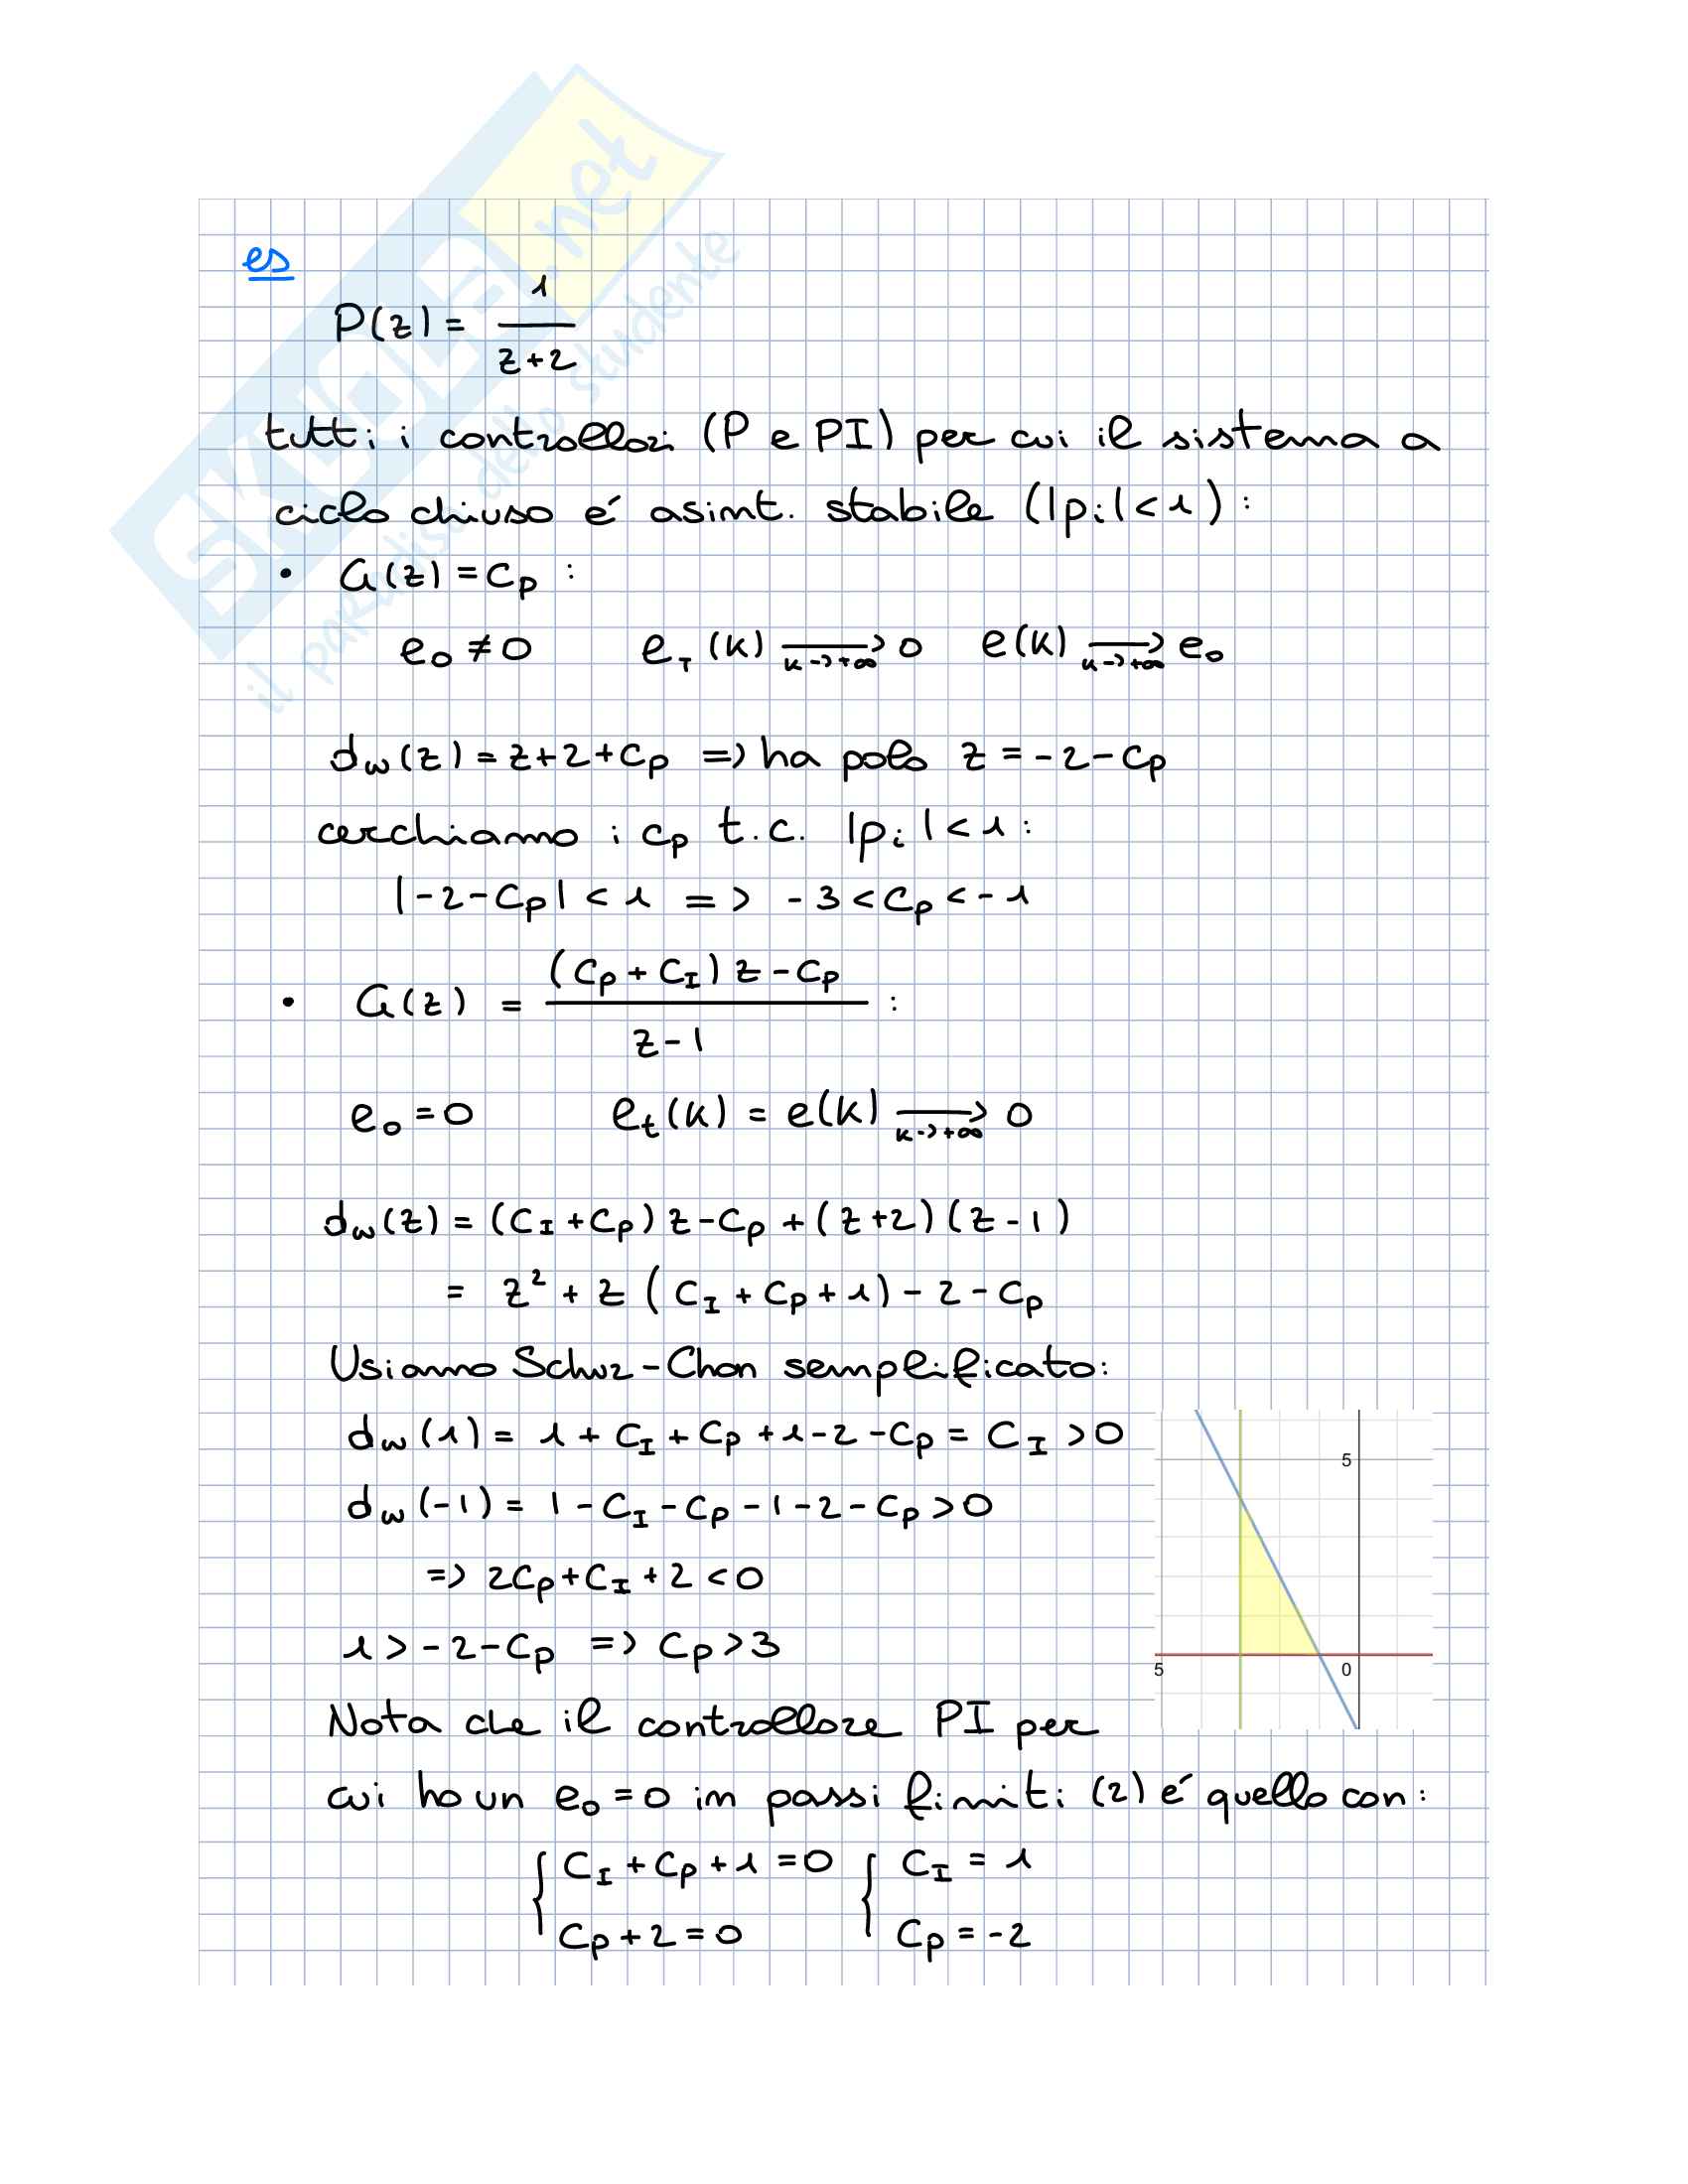 SKUOLA.net
il paradiso dello studente
es
P(z) = 1/(z+2)
tutti i controllori (P e PI) per cui il sistema a
ciclo chiuso é asint. stabile (|pi| < 1) :
• G(z) = Cp :
e0 ≠ 0 eT(k) ⟶k→+∞ 0 e(k) ⟶k→+∞ e0
dw(z) = z+2+Cp => ha polo z = -2-Cp
cerchiamo i Cp t.c. |pi| < 1 :
|-2-Cp| < 1 => -3 < Cp < -1
• G(z) = ((Cp + CI) z - Cp)/(z-1) :
e0 = 0 et(k) = e(k) ⟶k→+∞ 0
dw(z) = (CI + Cp) z - Cp + (z+2)(z-1)
= z² + z (CI + Cp + 1) - 2 - Cp
Usiamo Schuz-Chon semplificato:
dw(1) = 1 + CI + Cp + 1 - 2 - Cp = CI > 0
dw(-1) = 1 - CI - Cp - 1 - 2 - Cp > 0
=> 2Cp + CI + 2 < 0
1 > -2 - Cp => Cp > 3
5
5
0
Nota che il controllore PI per
cui ho un e0 = 0 in passi finiti (2) é quello con :
{ CI + Cp + 1 = 0 { CI = 1
Cp + 2 = 0 Cp = -2